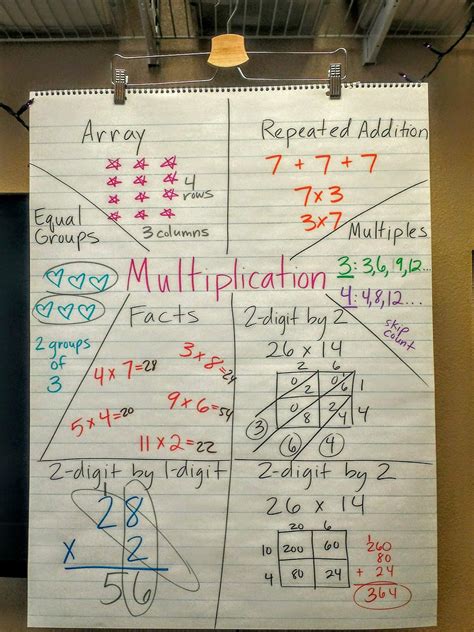 Array
4
rows
3 columns
Repeated Addition
7 + 7 + 7
7x3
3x7
Equal
Groups
2 groups
of
3
Multiplication
Multiples
3: 3,6,19,12...
4: 4,8,12....
skip
count
Facts
4 x 7=28
3 x 8=24
5 x 4=20
9 x 6=54
11 x 2=22
2-digit by 2
26 x 14
2 6
0 2 0 6 1
0 8 2 4 4
3 6 4
2-digit by 1-digit
1
28
x 2
56
2-digit by 2
26 x 14
20 6
10 200 60
4 80 24
1
260
80
+ 24
364